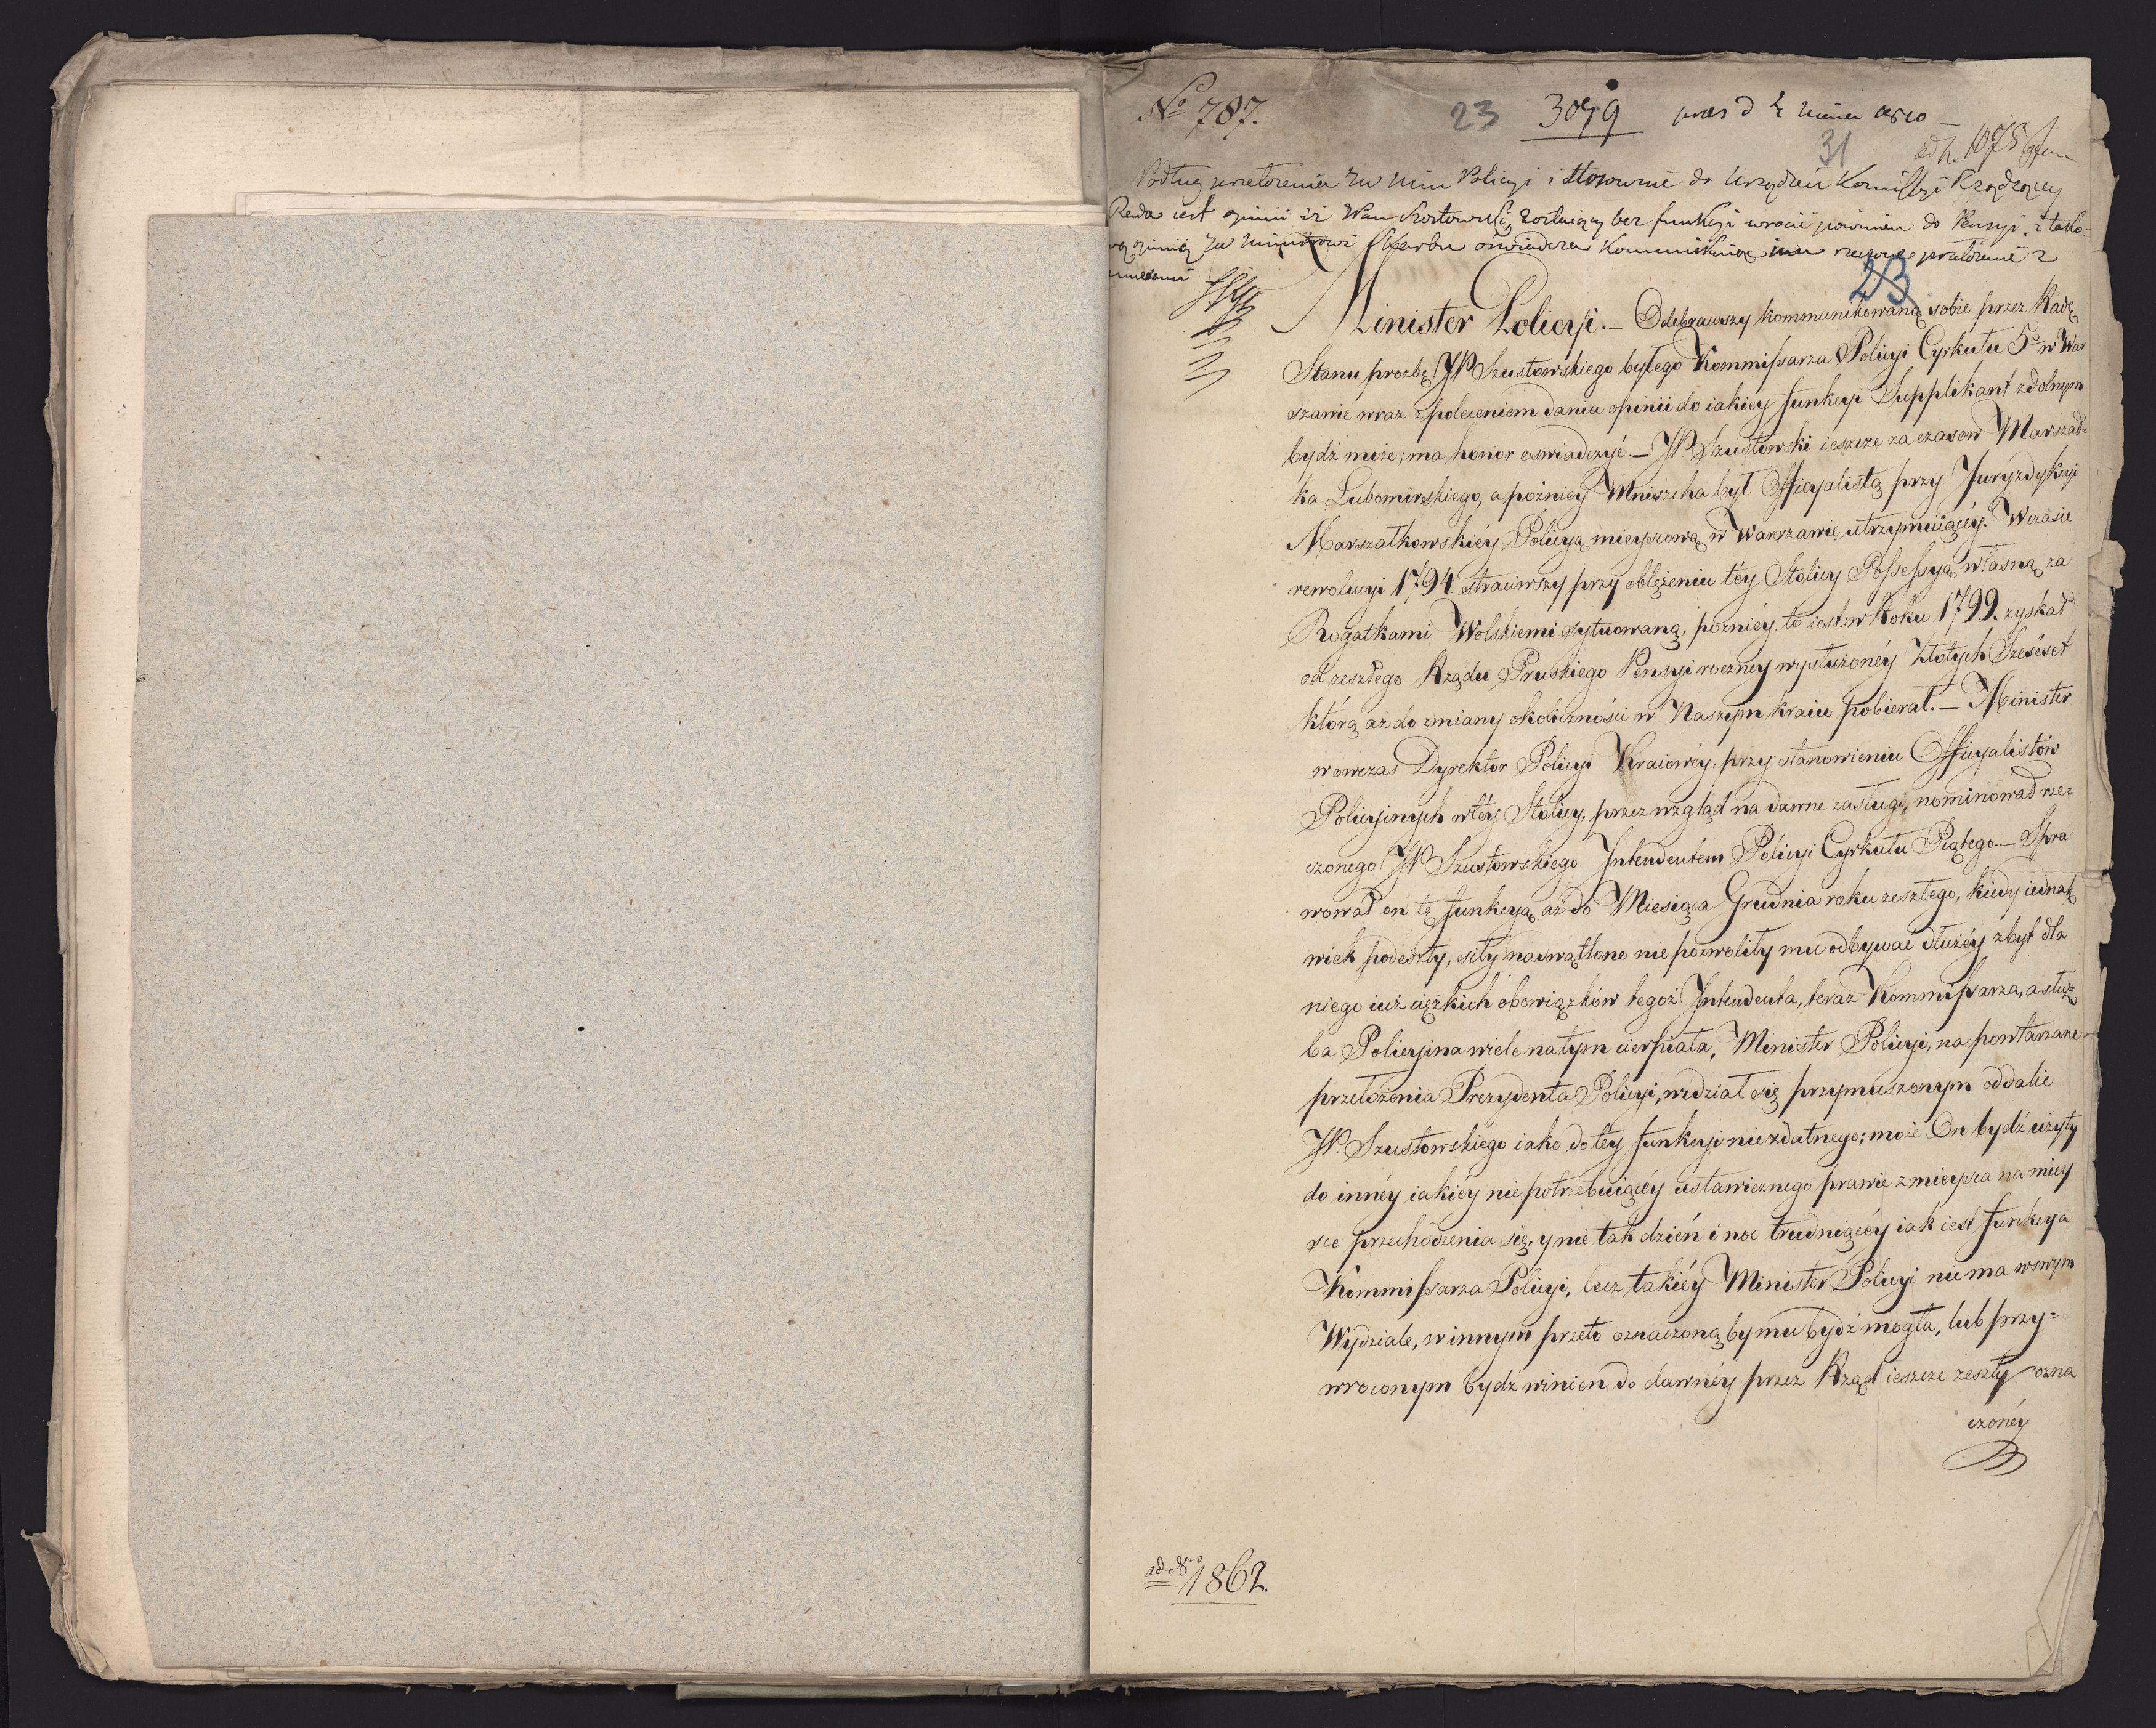 No 787.
23 3079 praes d 4 1810
31
ad N. 1075
Podług Min Policyi i stosownie do Urządzeń Kommissyi Rządzącey
Rada iest opinii iż bez funkcyi wrócić powinien do Pensyi, i tako-
opinię Skarbu oświadcza przełożenie z
23
Minister Policyi. — Odebrawszy kommunikowaną sobie przez Radę
Stanu prozbę JP. Szustowskiego byłego Kommissarza Policyi Cyrkułu 5o w War
szawie wraz z poleceniem dania opinii do iakiey funkcyi Supplikant zdolnym
bydź może; ma honor oswiadczyć. — JP. Szustowski ieszcze za czasow Marszał-
ka Lubomirskiego, a pózniey Mniszcha był Officyalistą przy Juryzdykcyi
Marszałkowskiéy Policyą mieyscową w Warszawie utrzymuiącéy. Wczasie
rewolucyi 1794. straciwszy przy oblężeniu téy Stolicy Possessyą własną za
Rogatkami Wolskiemi sytuowaną, pozniéy, to iest w Roku 1799. zyskał
od zeszłego Rządu Pruskiego Pensyi roczney wysłużonéy Złotych Sześćset
którą aż do zmiany okoliczności w Naszym kraiu pobierał. — Minister
wowczas Dyrektor Policyi Kraiowéy, przy stanowieniu Officyalistów
Policyinych w téy Stolicy, przez wzgląd na dawne zasługi, nominował rze=
czonego JP. Szustowskiego Intendentem Policyi Cyrkułu Piątego. — Spra
wował on tę funkcyą aż do Miesiąca Grudnia roku zeszłego, kiedy iednak
wiek podeszły, siły nadwątlone nie pozwoliły mu odbywać dłużéy zbyt dla
niego iuż ciężkich obowiązków tegoż Intendenta, teraz Kommissarza, a służ=
ba Policyina wiele na tym cierpiała, Minister Policyi, na powtarzane
przełożenia Prezydenta Policyi, widział się przymuszonym oddalić
JP. Szustowskiego iako do tey funkcyi niezdatnego; może On bydź użyty
do innéy iakiéy nie potrzebuiącéy ustawicznego prawie z mieysca na miey
sce przechodzenia się, y nie tak dzień i noc trudniącéy iak iest funkcya
Kommissarza Policyi, lecz takiéy Minister Policyi nie ma w swym
Wydziale, w innym przeto oznaczoną by mu bydź mogła, lub przy=
wroconym bydź winien do dawnéy przez Rząd ieszcze zeszły ozna
czonéy
ad Nro 1862.